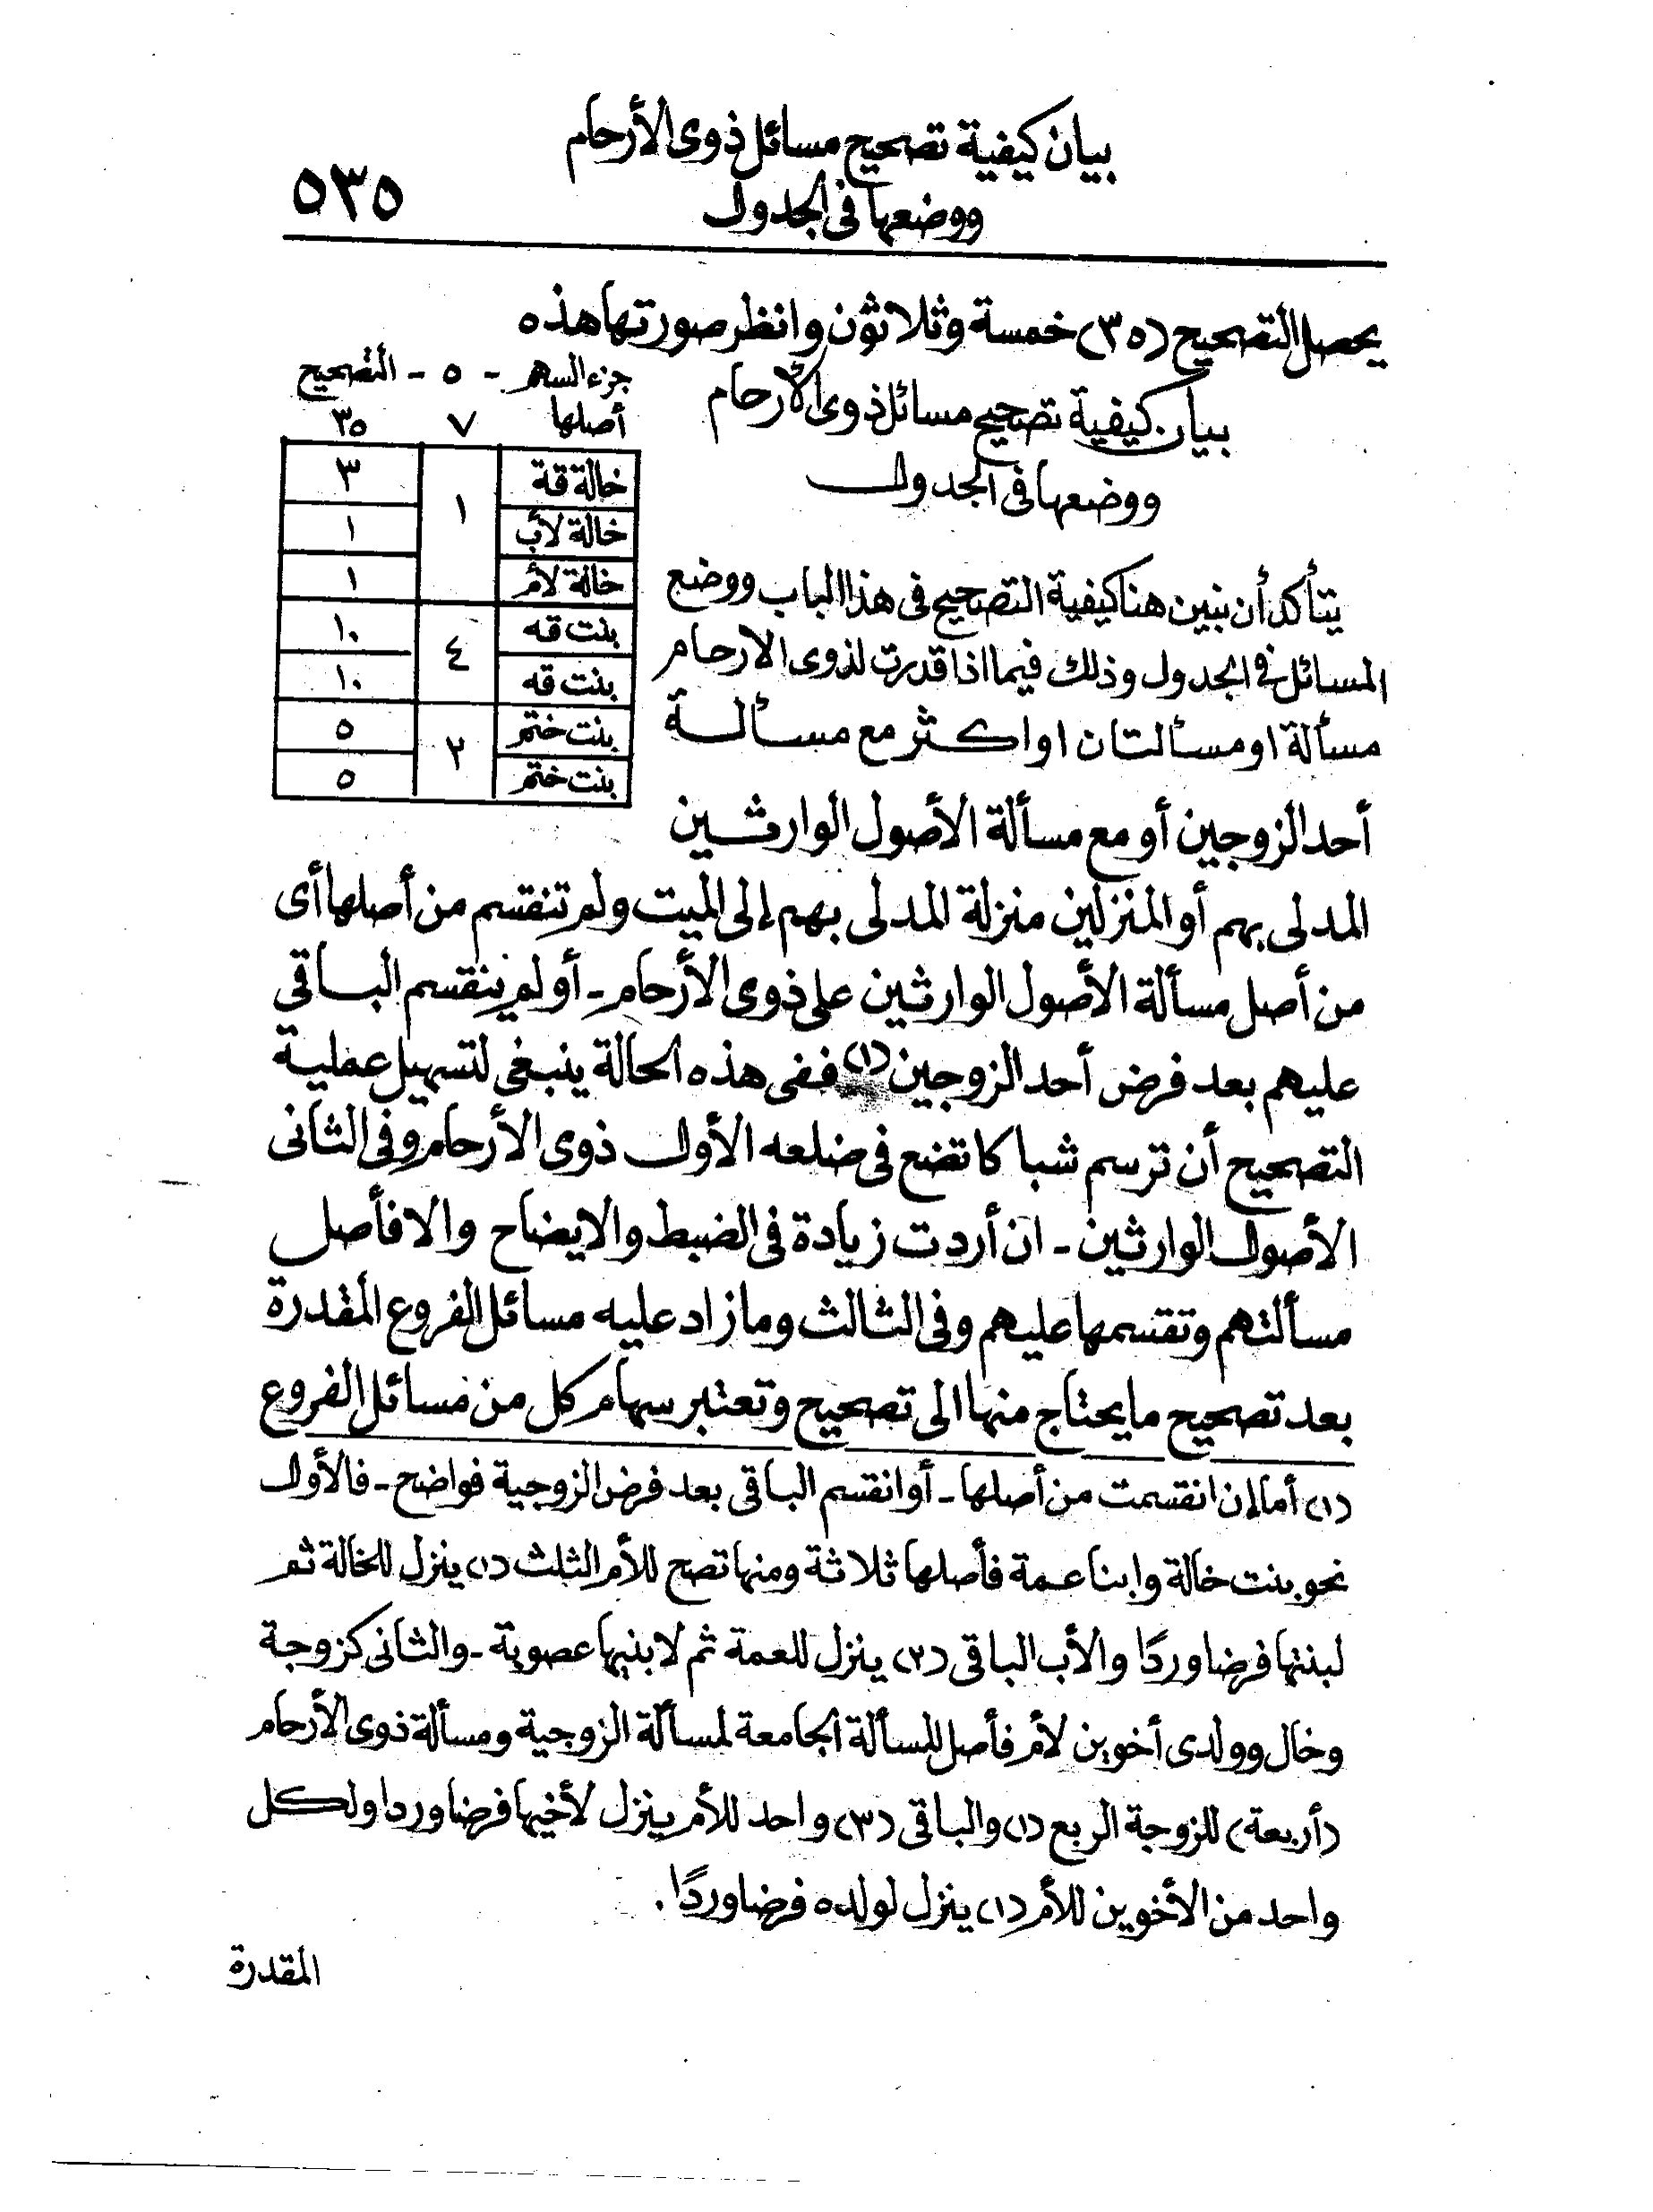 بيان كيفية تصحيح مسائل ذوى الأرحام
ووضعها فى الجدول
٥٣٥
يحصل التصحيح (٣٥) خمسة وثلاثون وانظر صورتها هذه
جزء السهم - ٥ - التصحيح
أصلها ٧ ٣٥
خالة قة ١ ٣
خالة لأب ١
خالة لأم ١
بنت قه ٤ ١٠
بنت قه ١٠
بنت ختم ٢ ٥
بنت ختم ٥
بيان كيفية تصحيح مسائل ذوى الأرحام
ووضعها فى الجدول
يتأكد أن نبين هنا كيفية التصحيح فى هذا الباب ووضع
المسائل فى الجدول وذلك فيما اذا قدرت لذوى الارحام
مسألة او مسألتان او اكثر مع مسألة
أحد الزوجين أو مع مسألة الأصول الوارثين
المدلى بهم أو المنزلين منزلة المدلى بهم إلى الميت ولم تنقسم من أصلها أى
من أصل مسألة الأصول الوارثين على ذوى الأرحام - أو لم ينقسم الباقى
عليهم بعد فرض أحد الزوجين (١) ففى هذه الحالة ينبغى لتسهيل عملية
التصحيح أن ترسم شباكا تضع فى ضلعه الأول ذوى الأرحام وفى الثانى
الأصول الوارثين - ان أردت زيادة فى الضبط والايضاح والا فأصل
مسألتهم وتقسمها عليهم وفى الثالث وما زاد عليه مسائل الفروع المقدرة
بعد تصحيح ما يحتاج منها الى تصحيح وتعتبر سهام كل من مسائل الفروع
(١) أما إن انقسمت من أصلها - أو انقسم الباقى بعد فرض الزوجية فواضح - فالأول
نحو بنت خالة وابنا عمة فأصلها ثلاثة ومنها تصح للأم الثلث (١) ينزل للخالة ثم
لبنتها فرضا وردًا والأب الباقى (٢) ينزل للعمة ثم لابنيها عصوبة - والثانى كزوجة
وخال وولدى أخوين لأم فأصل المسألة الجامعة لمسألة الزوجية ومسألة ذوى الأرحام
(أربعة) للزوجة الربع (١) والباقى (٣) واحد للأم ينزل لأخيها فرضا وردا ولكل
واحد من الأخوين للأم (١) ينزل لولده فرضا وردًا .
المقدرة